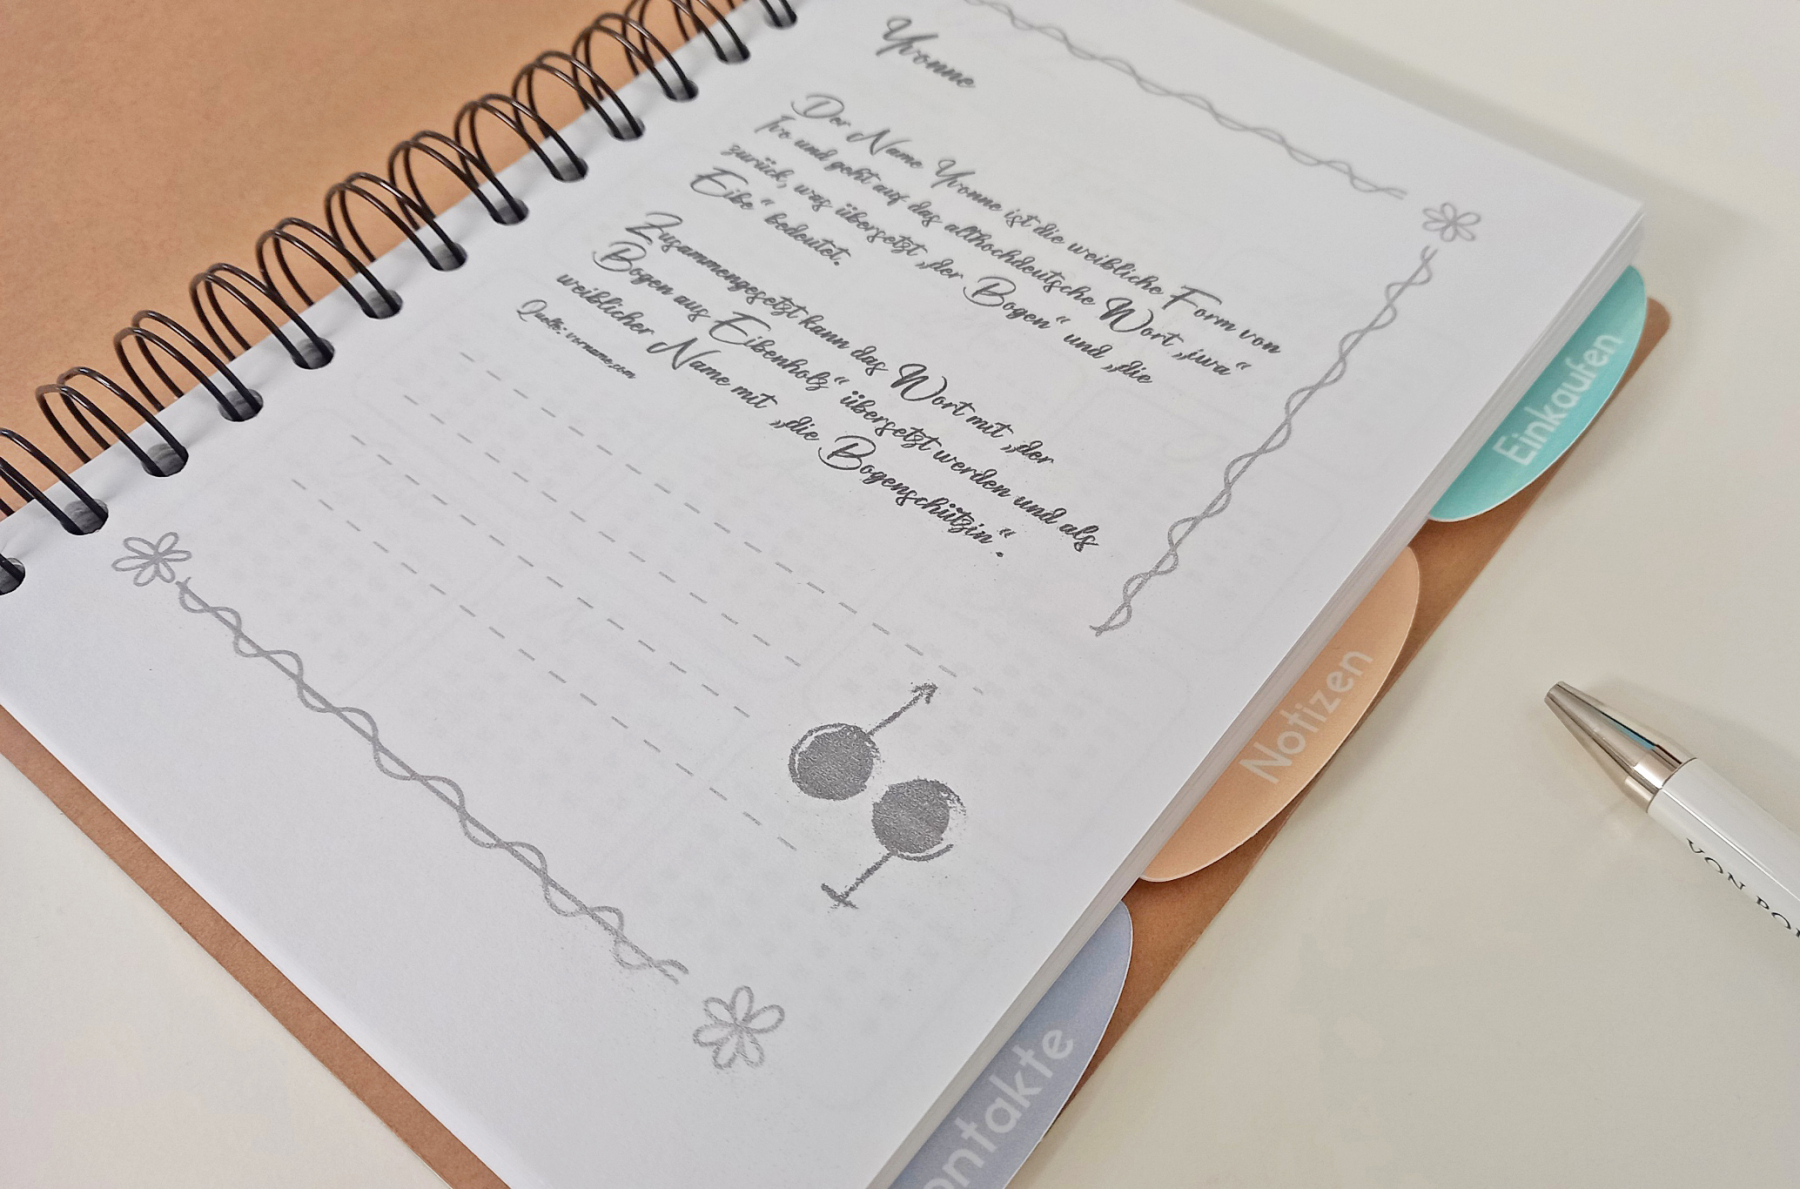 Yvonne
Der Name Yvonne ist die weibliche Form von
Ivo und geht auf das althochdeutsche Wort „iwa“
zurück, was übersetzt „der Bogen“ und „die
Eibe“ bedeutet.
Zusammengesetzt kann das Wort mit „der
Bogen aus Eibenholz“ übersetzt werden und als
weiblicher Name mit „die Bogenschützin“.
Quelle: vorname.com
Einkaufen
Notizen
ontakte
VON